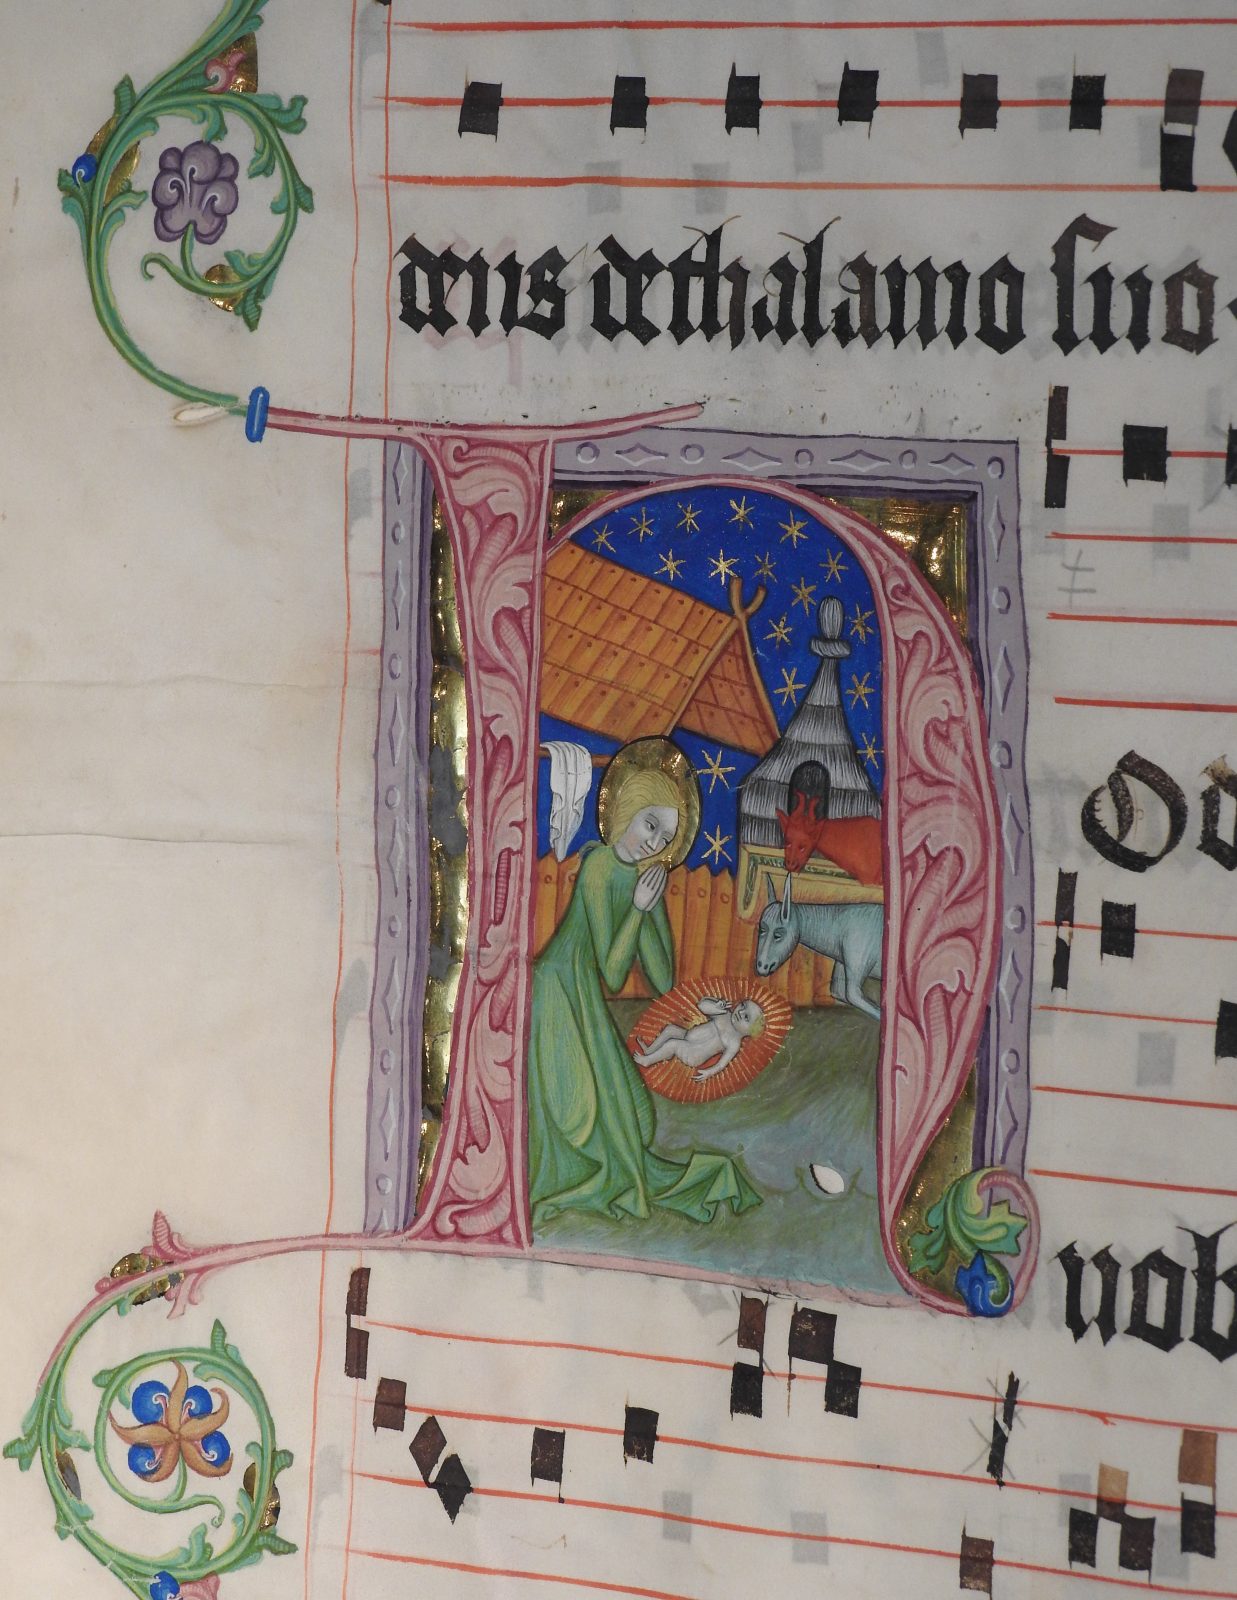 dens dethalamo suo.
HOd
nob